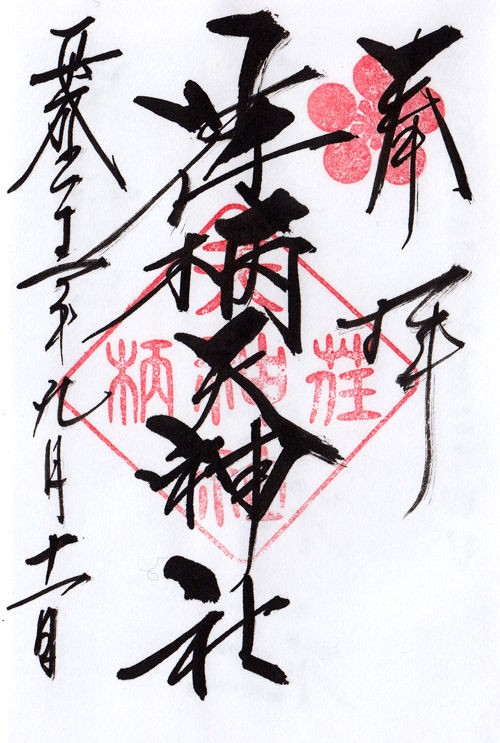 奉拝
荏柄天神社
平成二十一年九月十一日
荏柄天神社